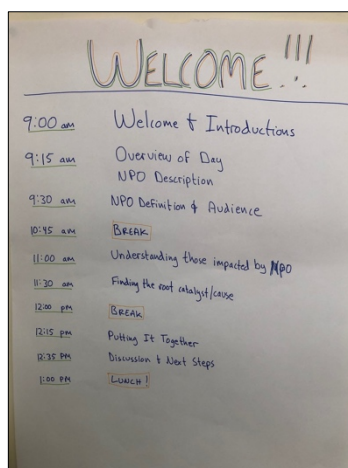 WELCOME!!!
9:00 am Welcome & Introductions
9:15 am Overview of Day
NPO Description
9:30 am NPO Definition & Audience
10:45 am BREAK
11:00 am Understanding those impacted by NPO
11:30 am Finding the root catalyst/cause
12:00 pm BREAK
12:15 pm Putting It Together
12:35 PM Discussion & Next Steps
1:00 PM LUNCH!